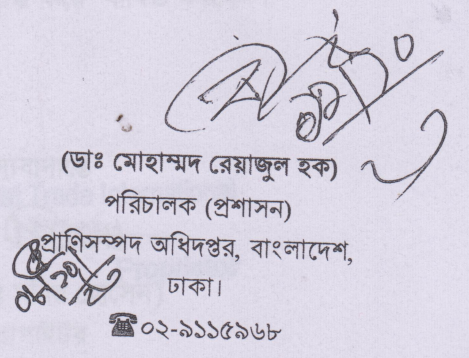 (ডাঃ মোহাম্মদ রেয়াজুল হক)
পরিচালক (প্রশাসন)
প্রাণিসম্পদ অধিদপ্তর, বাংলাদেশ,
ঢাকা।
☎০২-৯১১৫৯৬৮